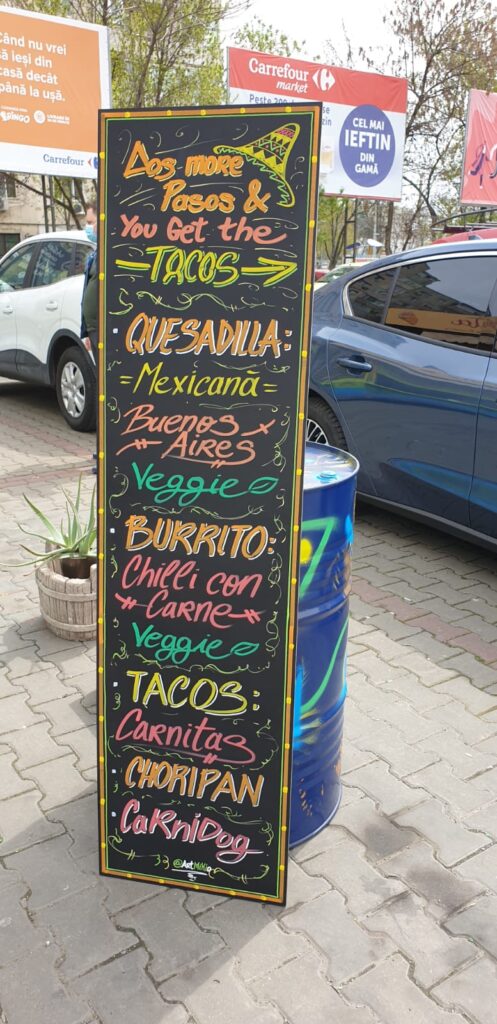 Când nu vrei
să ieși din
casă decât
până la ușă.
BRINGO
Carrefour
Carrefour
market
CEL MAI
IEFTIN
DIN
GAMĂ
Dos more
Pasos &
You Get the
TACOS
QUESADILLA:
=Mexicană=
Buenos
Aires
Veggie
BURRITO:
Chilli con
Carne
Veggie
TACOS:
Carnitas
CHORIPAN
CaRniDog